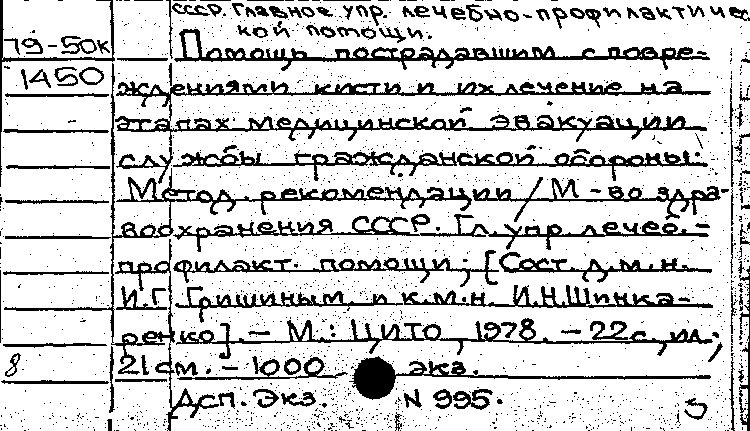 СССР. Главное упр. лечебно-профилактичес
кой помощи.
79-50к Помощь пострадавшим с повре-
1450 ждениями кисти и их лечение на
этапах медицинской эвакуации
службы гражданской обороны:
Метод. рекомендации / М-во здра-
воохранения СССР. Гл. упр. лечеб.-
профилакт. помощи; [Сост. д.м.н.
И.Г. Гришиным и к.м.н. И.Н.Шинка-
ренко]. – М.: ЦИТО, 1978. – 22с., ил.;
8 21см. – 1000 экз.
Дсп. Экз. N 995.